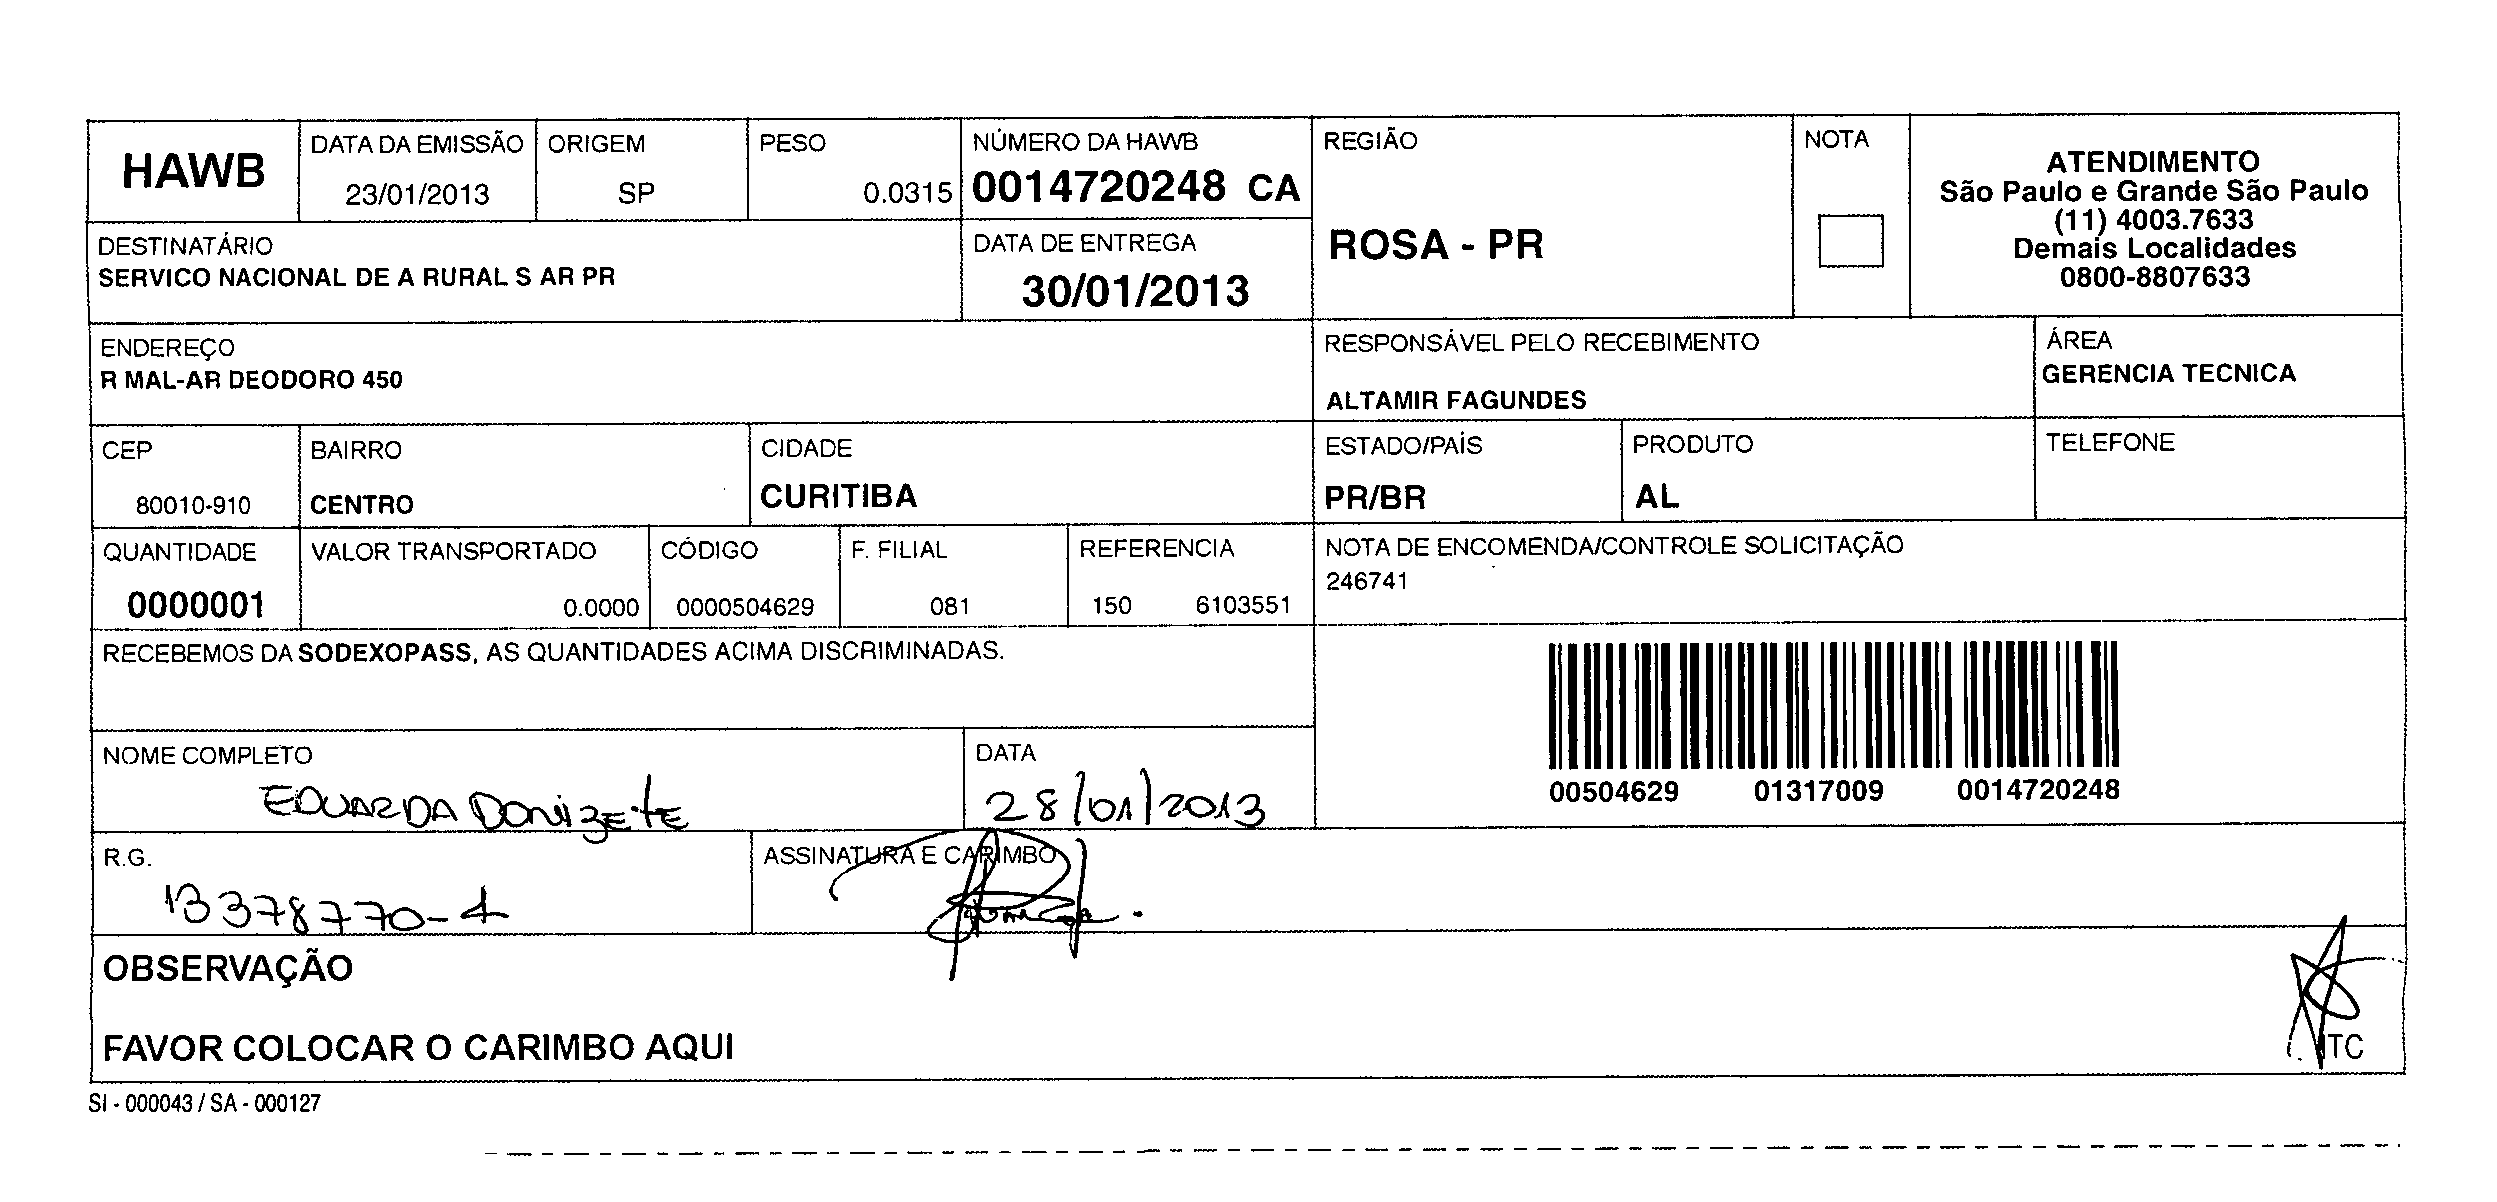 HAWB
DATA DA EMISSÃO
23/01/2013
ORIGEM
SP
PESO
0.0315
NÚMERO DA HAWB
0014720248 CA
REGIÃO
ROSA - PR
NOTA
ATENDIMENTO
São Paulo e Grande São Paulo
(11) 4003.7633
Demais Localidades
0800-8807633
DESTINATÁRIO
SERVICO NACIONAL DE A RURAL S AR PR
DATA DE ENTREGA
30/01/2013
ENDEREÇO
R MAL-AR DEODORO 450
RESPONSÁVEL PELO RECEBIMENTO
ALTAMIR FAGUNDES
ÁREA
GERENCIA TECNICA
CEP
80010-910
BAIRRO
CENTRO
CIDADE
CURITIBA
ESTADO/PAÍS
PR/BR
PRODUTO
AL
TELEFONE
QUANTIDADE
0000001
VALOR TRANSPORTADO
0.0000
CÓDIGO
0000504629
F. FILIAL
081
REFERENCIA
150 6103551
NOTA DE ENCOMENDA/CONTROLE SOLICITAÇÃO
246741
RECEBEMOS DA SODEXOPASS, AS QUANTIDADES ACIMA DISCRIMINADAS.
00504629 01317009 0014720248
NOME COMPLETO
EDUARDA DONIZETE
DATA
28/01/2013
R.G.
13378770-1
ASSINATURA E CARIMBO
OBSERVAÇÃO
FAVOR COLOCAR O CARIMBO AQUI
ITC
SI - 000043 / SA - 000127